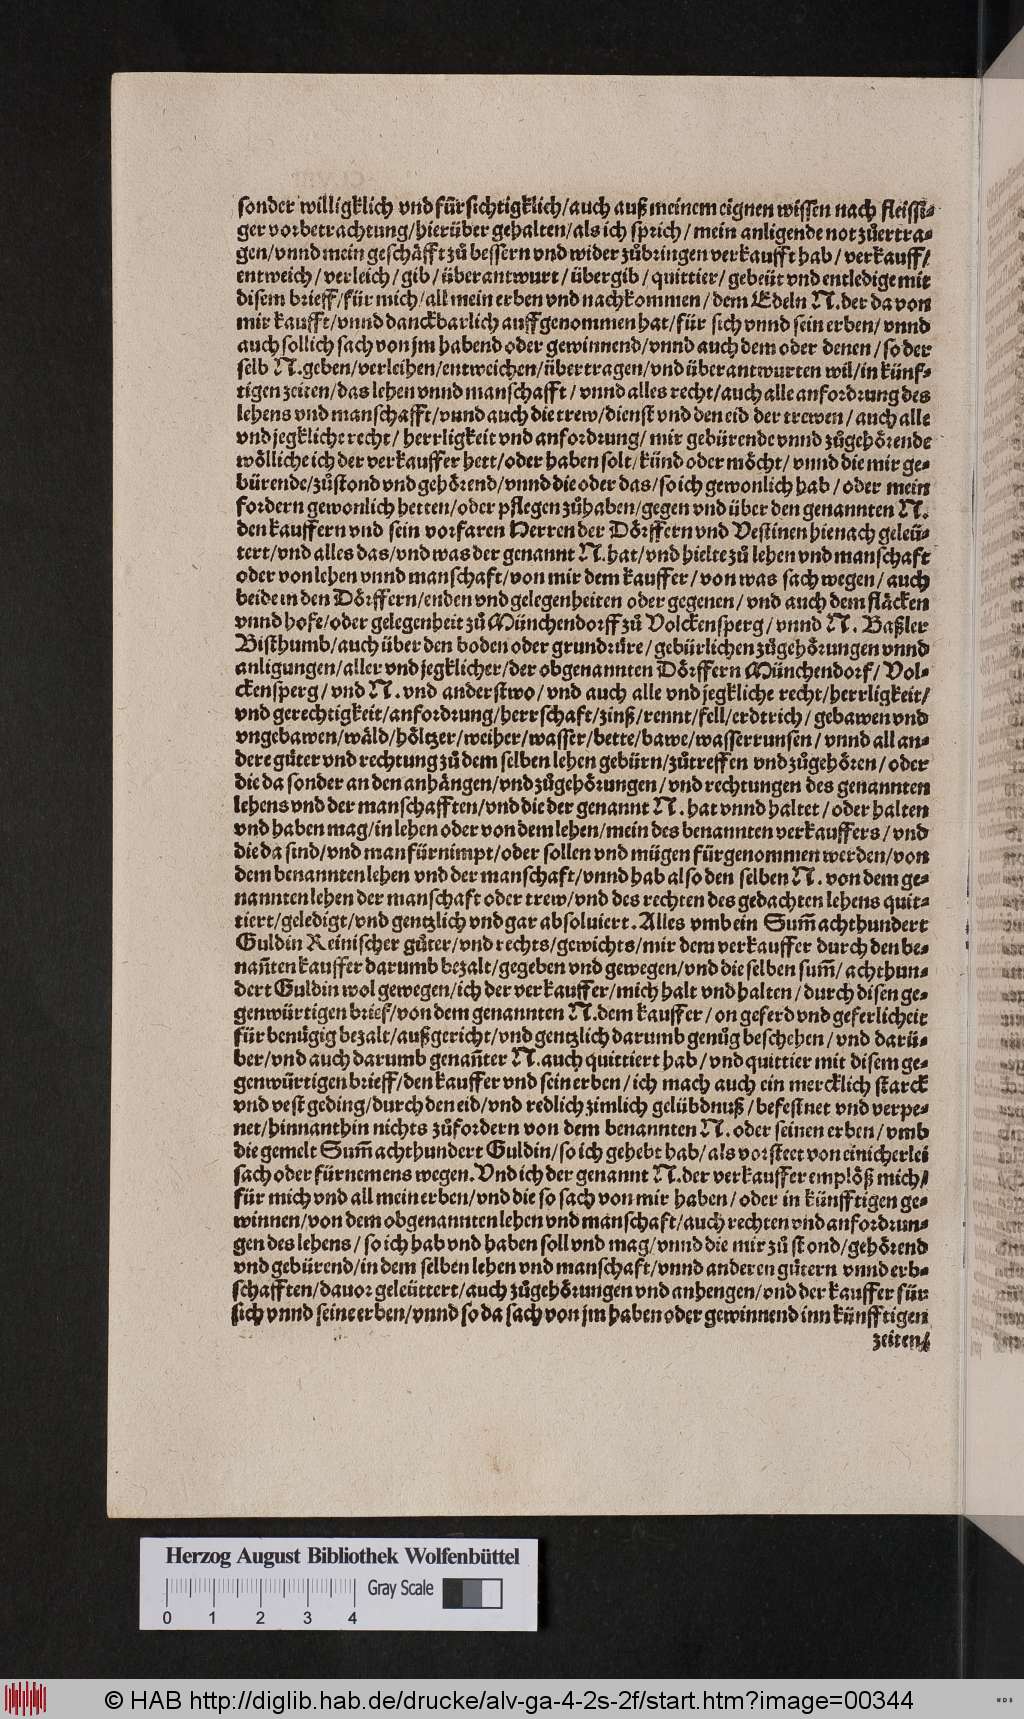 sonder willigklich vnd fürsichtigklich/auch auß meinem eignen wissen nach fleissi⸗
ger vorbetrachtung/hierüber gehalten/als ich sprich/mein anligende not zůertra⸗
gen/vnnd mein geschäfft zů bessern vnd wider zůbringen verkaufft hab/verkauff/
entweich/verleich/gib/überantwurt/übergib/quittier/gebeüt vnd entledige mit
disem brieff/für mich/all mein erben vnd nachkommen/dem Edeln N. der da von
mir kaufft/vnnd danckbarlich auffgenommen hat/für sich vnnd sein erben/vnnd
auch sollich sach von jm habend oder gewinnend/vnnd auch dem oder denen/so der
selb N. geben/verleihen/entweichen/übertragen/vnd überantwurten wil/in künf⸗
tigen zeiten/das lehen vnnd manschafft/vnnd alles recht/auch alle anfordrung des
lehens vnd manschafft/vnnd auch die trew/dienst vnd den eid der trewen/auch alle
vnd jegkliche recht/herrligkeit vnd anfordrung/mir gebürende vnnd zůgehörende
wölliche ich der verkauffer hett/oder haben solt/künd oder möcht/vnnd die mir ge⸗
bürende/zůstond vnd gehörend/vnnd die oder das/so ich gewonlich hab/oder mein
fordern gewonlich hetten/oder pflegen zůhaben/gegen vnd über den genannten N.
den kauffern vnd sein vorfaren Herren der Dörffern vnd Vestinen hienach geleü⸗
tert/vnd alles das/vnd was der genannt N. hat/vnd hielte zů lehen vnd manschaft
oder von lehen vnnd manschaft/von mir dem kauffer/von was sach wegen/auch
beide in den Dörffern/enden vnd gelegenheiten oder gegenen/vnd auch dem fläcken
vnnd hofe/oder gelegenheit zů Münchendorff zů Volckensperg/vnnd N. Baßler
Bisthumb/auch über den boden oder grundrüre/gebürlichen zůgehörungen vnnd
anligungen/aller vnd jegklicher/der obgenannten Dörffern Münchendorf/Vol⸗
ckensperg/vnd N. vnd anderstwo/vnd auch alle vnd jegkliche recht/herrligkeit/
vnd gerechtigkeit/anfordrung/herrschaft/zinß/rennt/fell/erdtrich/gebawen vnd
vngebawen/wäld/höltzer/weiher/wasser/bette/bawe/wasserrunsen/vnnd all an⸗
dere gůter vnd rechtung zů dem selben lehen gebürn/zůtreffen vnd zůgehören/oder
die da sonder an den anhängen/vnd zůgehörungen/vnd rechtungen des genannten
lehens vnd der manschafften/vnd die der genannt N. hat vnnd haltet/oder halten
vnd haben mag/in lehen oder von dem lehen/mein des benannten verkauffers/vnd
die da sind/vnd man fürnimpt/oder sollen vnd mügen fürgenommen werden/von
dem benannten lehen vnd der manschaft/vnnd hab also den selben N. von dem ge⸗
nannten lehen der manschaft oder trew/vnd des rechten des gedachten lehens quit⸗
tiert/geledigt/vnd gentzlich vnd gar absoluiert. Alles vmb ein Sum̃ achthundert
Guldin Reinischer gůter/vnd rechts/gewichts/mir dem verkauffer durch den be⸗
nañten kauffer darumb bezalt/gegeben vnd gewegen/vnd die selben sum̃/achthun⸗
dert Guldin wol gewegen/ich der verkauffer/mich halt vnd halten/durch disen ge⸗
genwürtigen brief/von dem genannten N. dem kauffer/on geferd vnd geferlicheit
für benügig bezalt/außgericht/vnd gentzlich darumb genůg beschehen/vnd darü⸗
ber/vnd auch darumb genañter N. auch quittiert hab/vnd quittier mit disem ge⸗
genwürtigen brieff/den kauffer vnd sein erben/ich mach auch ein mercklich starck
vnd vest geding/durch den eid/vnd redlich zimlich gelübdnuß/befestnet vnd verpe⸗
net/hinnanthin nichts zůfordern von dem benannten N. oder seinen erben/vmb
die gemelt Sum̃ achthundert Guldin/so ich gehebt hab/als vorsteet von einicherlei
sach oder fürnemens wegen. Vnd ich der genannt N. der verkauffer emplöß mich/
für mich vnd all mein erben/vnd die so sach von mir haben/oder in künfftigen ge⸗
winnen/von dem obgenannten lehen vnd manschaft/auch rechten vnd anfordrun⸗
gen des lehens/so ich hab vnd haben soll vnd mag/vnnd die mir zů stond/gehörend
vnd gebürend/in dem selben lehen vnd manschaft/vnnd anderen gůtern vnnd erb⸗
schafften/dauor geleüttert/auch zůgehörungen vnd anhengen/vnd der kauffer für
sich vnnd seine erben/vnnd so da sach von jm haben oder gewinnend inn künfftigen
zeiten/
Herzog August Bibliothek Wolfenbüttel
Gray Scale
0 1 2 3 4
© HAB http://diglib.hab.de/drucke/alv-ga-4-2s-2f/start.htm?image=00344